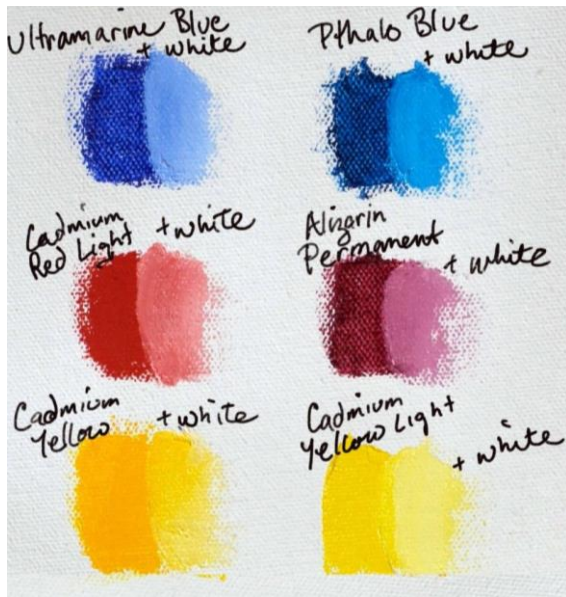 Ultramarine Blue
+ white
Pthalo Blue
+ white
Cadmium
Red Light + white
Alizarin
Permanent
+ white
Cadmium
Yellow + white
Cadmium
Yellow Light
+ white